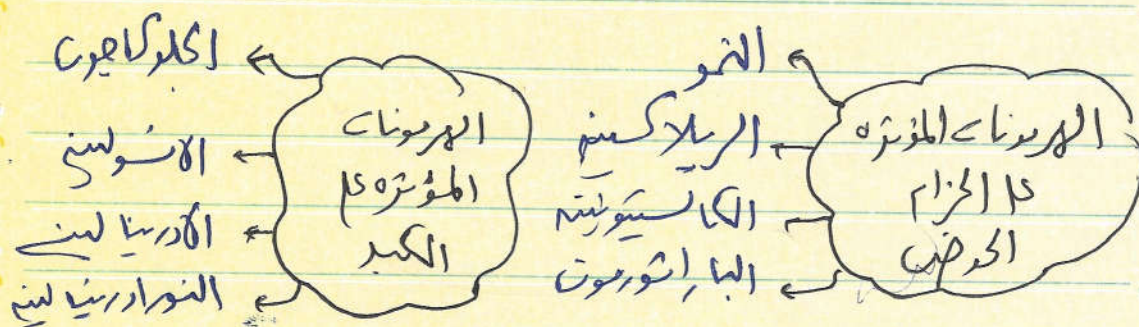 الهرمونات المؤثره
على الحزام
الحوضى
النمو
الريلاكسين
الكالسيتونين
الباراثورمون
الهرمونات
المؤثره على
الكبد
الجلوكاجون
الانسولين
الادرينالين
النورادرينالين